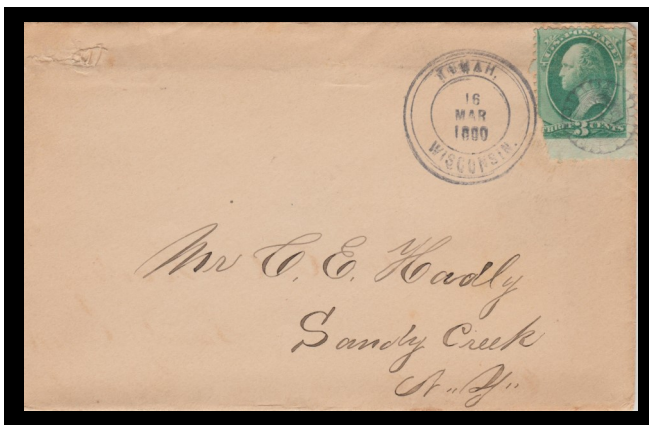 TOMAH,
16
MAR
1880
WISCONSIN.
U.S. POSTAGE
3 CENTS
Mr C. E. Hadly
Sandy Creek
N.. Y..